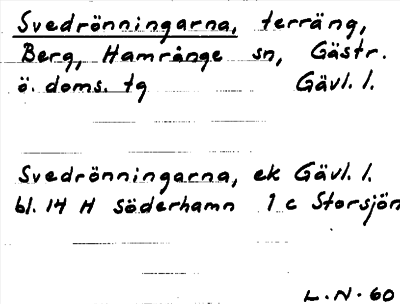 Svedrönningarna, terräng,
Berg, Hamrånge sn, Gästr.
ö. doms. tg Gävl. l.
Svedrönningarna, ek Gävl. l.
bl. 14 H Söderhamn 1 c Storsjön
L.N. 60